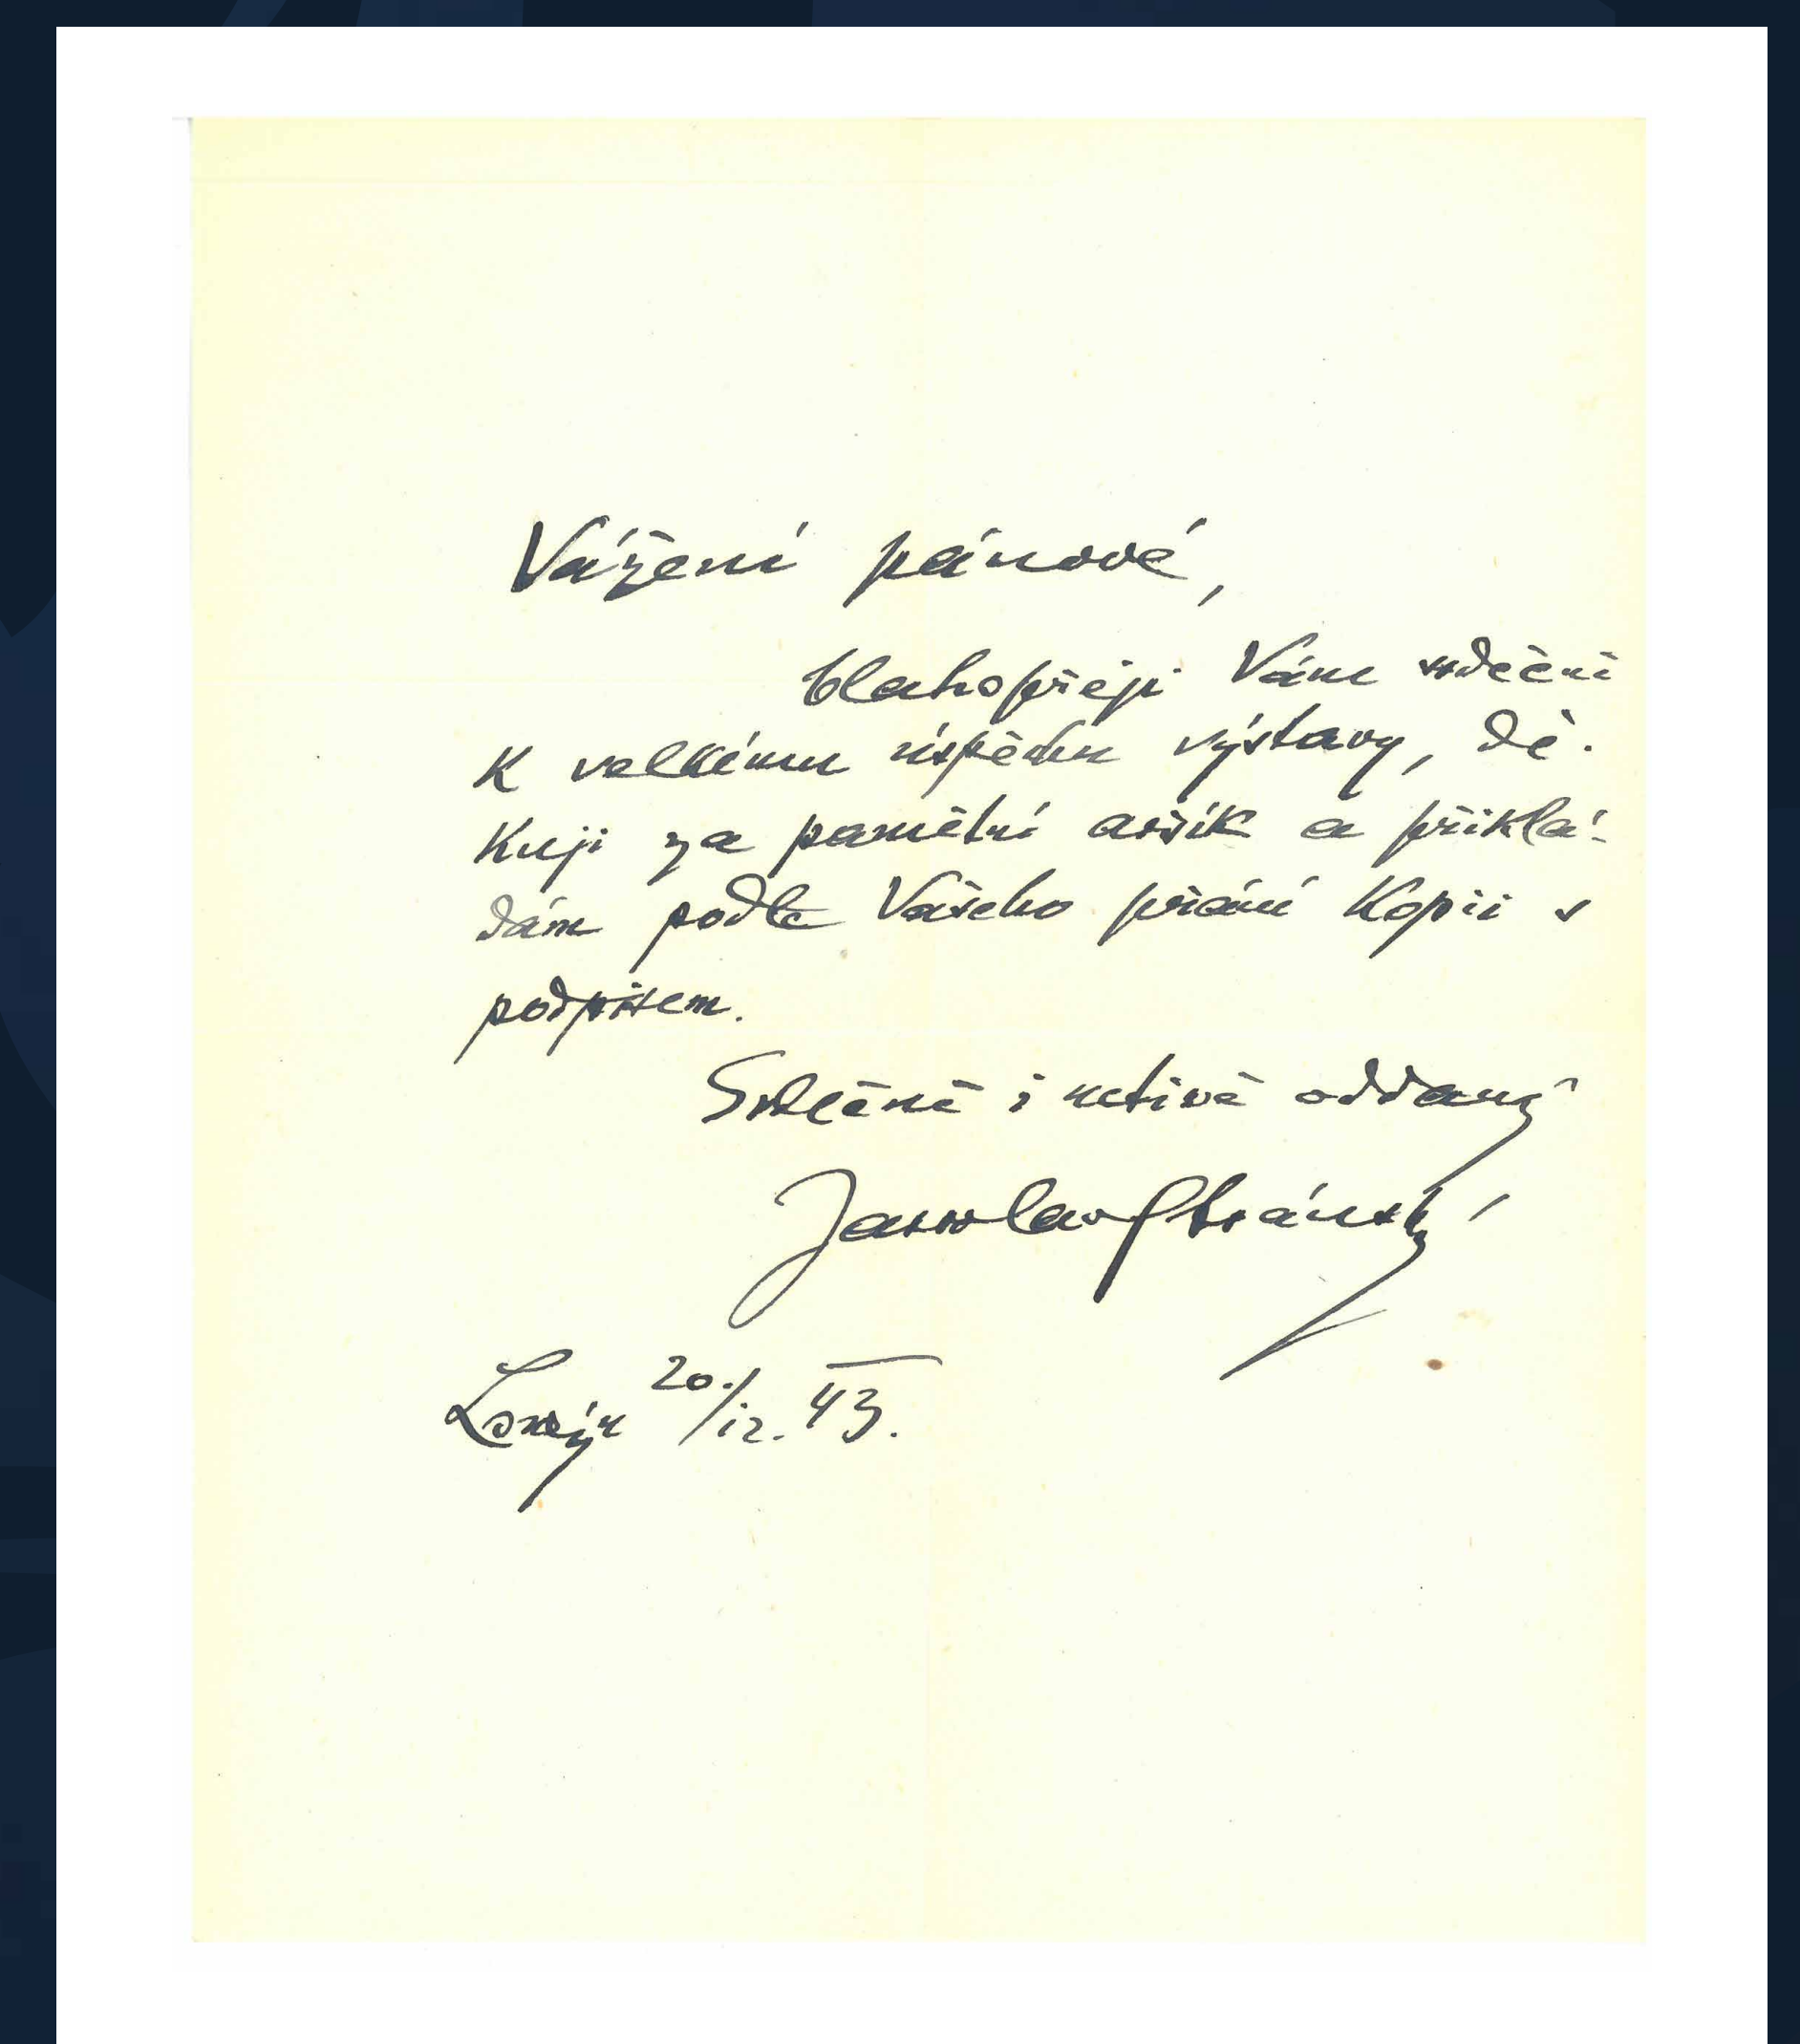 Vážení pánové,
blahopřeji Vám srdečně
k velkému úspěchu výstavy, dě-
kuji za pamětní aršík a přiklá-
dám podle Vašeho přání kopii s
podpisem.
Srdečně i uctivě oddaný
Jaroslav Stránský
Londýn 20./12. 43.